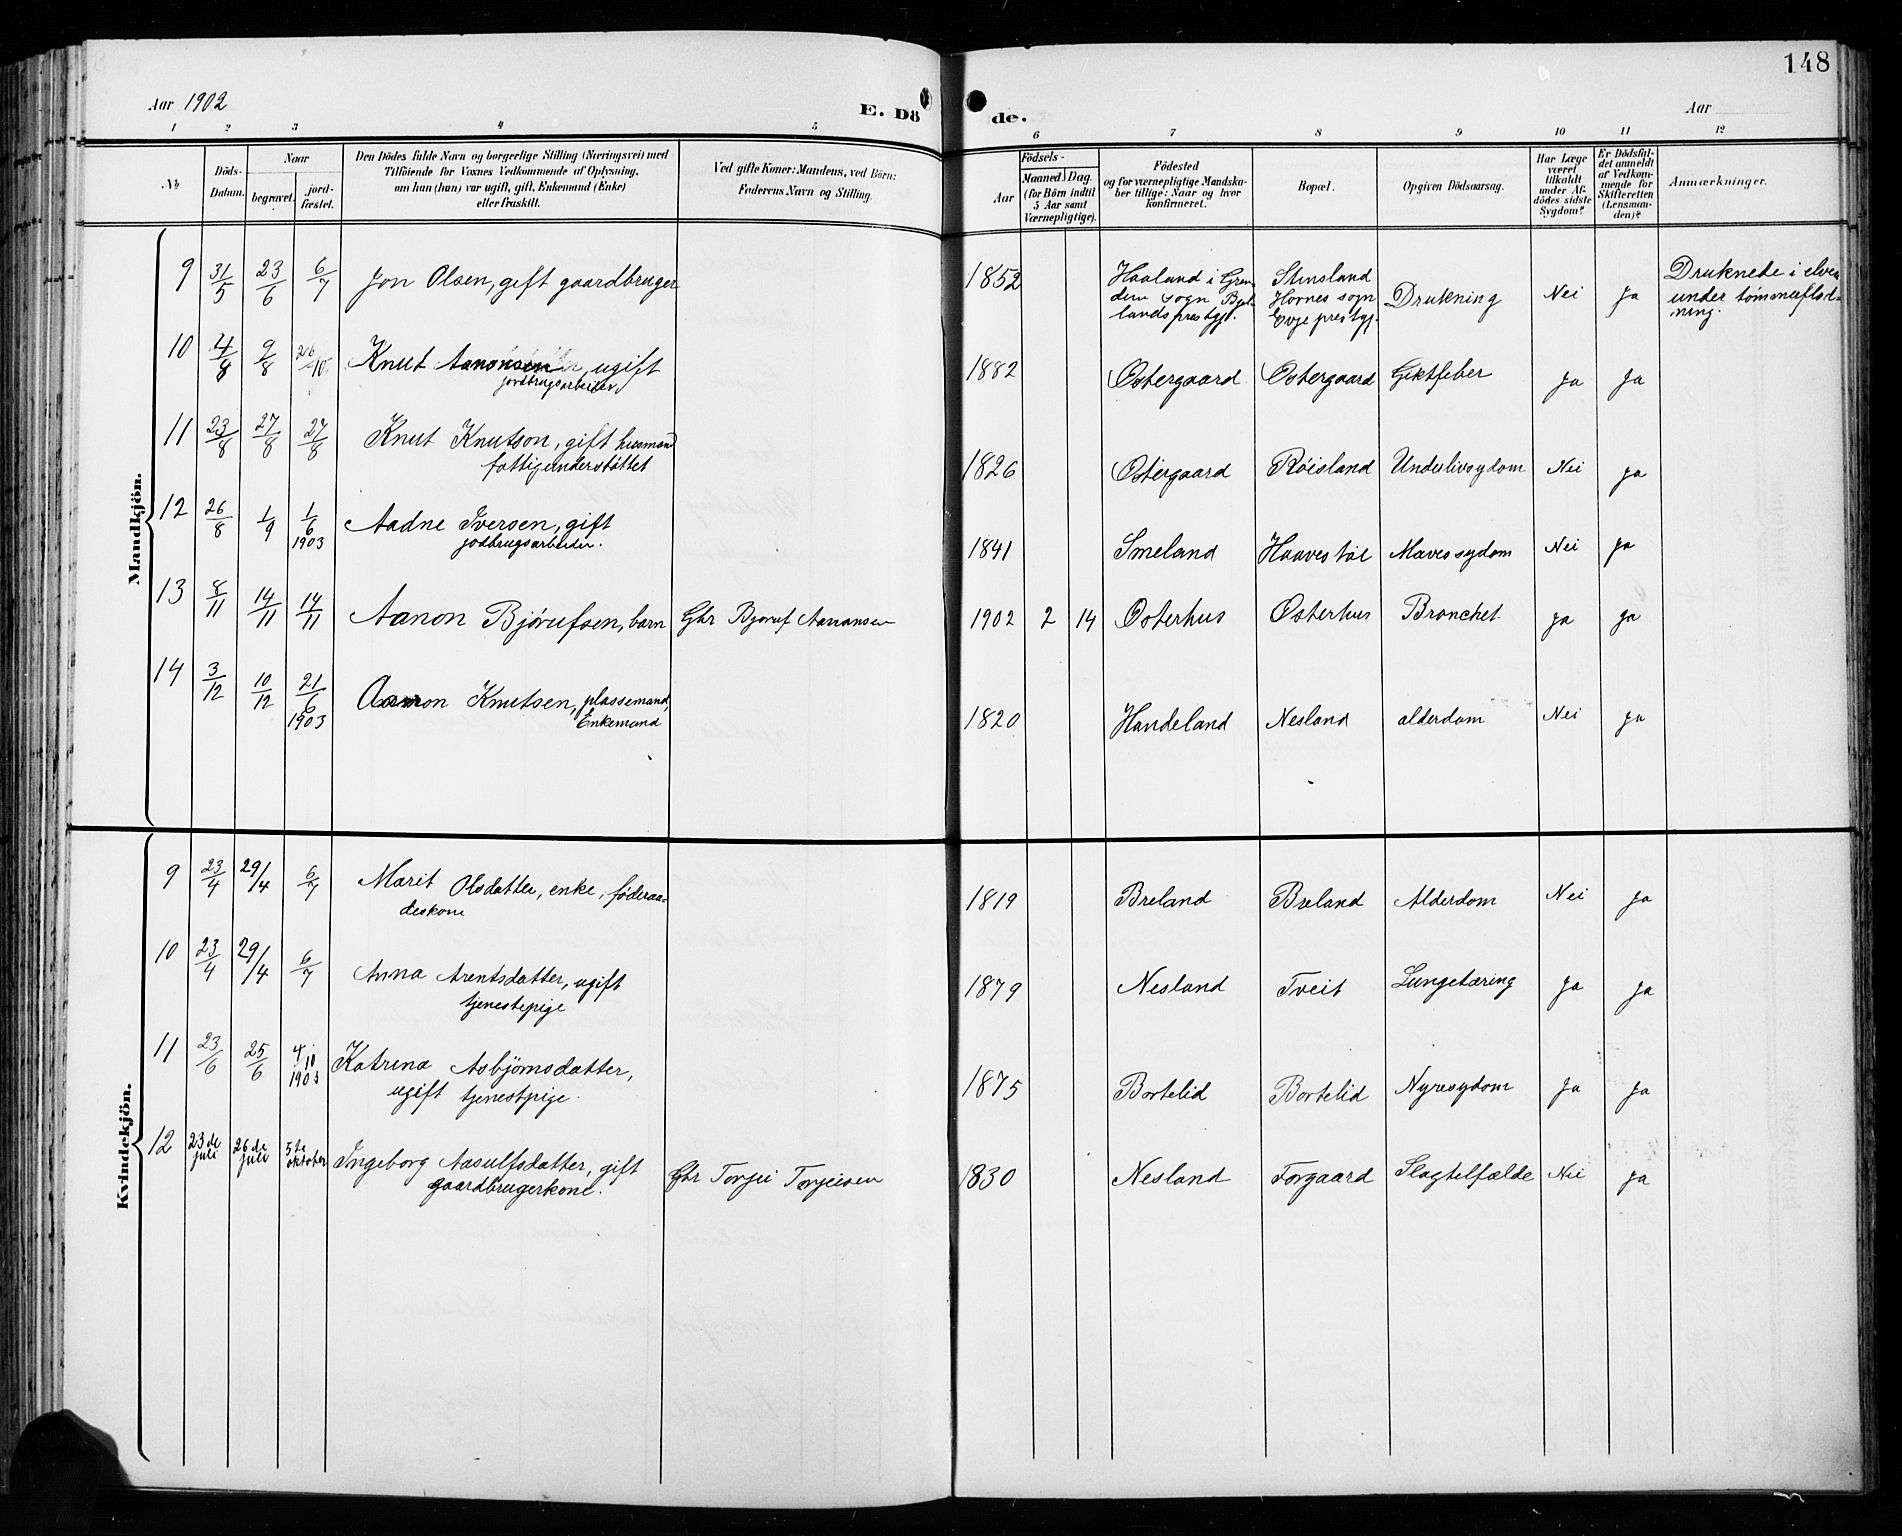 148
Aar 1902
E. Dö
de.
Aar
1 2 3 4 5
6 7 8 9 10 11 12
№
Döds-
Datum.
Naar
begravet.
jord-
fæstet.
Den Dödes fulde Navn og borgerlige Stilling (Næringsvei) med
Tilföiende for Voxnes Vedkommende af Oplysning,
om han (hun) var ugift, gift, Enkemand (Enke)
eller fraskilt.
Ved gifte Koner: Mandens, ved Börn:
Faderens Navn og Stilling.
Födsels-
Aar
Maaned. Dag.
(for Börn indtil
5 Aar samt
Værnepligtige).
Födested
og for værnepligtige Mandska-
ber tillige: Naar og hvor
konfirmeret.
Bopæl.
Opgiven Dödsaarsag.
Har Læge
været
tilkaldt
under Af-
dödes sidste
Sygdom?
Er Dödsfal-
det anmeldt
af Vedkom-
mende for
Skifteretten
(Lensman-
den)?
Anmærkninger.
Mandkjön.
9 31/5 23/6 6/7 Jon Olsen, gift gaardbruger
1852 Haaland i Grin-
dem sogn Bjel-
lands prestgj.
Stinsland
Hornes sogn
Evje prestgj.
Drukning Nei Ja
Druknede i elven
under tømmerflød-
ning.
10 4/8 9/8 26/10 Knut Aanonsen, ugift
jordbrugsarbeider
1882 Østergaard Østergaard Giktfeber Ja Ja
11 23/8 27/8 27/8 Knut Knutson, gift husmand
fattigunderstøttet
1826 Østergaard Røisland Underlivsydom Nei Ja
12 26/8 1/9 1/6 1903 Aadne Iversen, gift
jodbrugsarbeider.
1841 Smeland Haavestøl Mavessydom Nei Ja
13 8/11 14/11 14/11 Aanon Bjørufsen, barn Gbr Bjøruf Aanonsen
1902 2 14 Østerhus Østerhus Bronchet Ja Ja
14 3/12 10/12 21/6 1903 Aanon Knutsen, plassemand,
Enkemand
1820 Handeland Nesland alderdom Nei Ja
Kvindekjön.
9 23/4 29/4 6/7 Marit Olsdatter, enke, føderaa-
deskone
1819 Breland Breland Alderdom Nei Ja
10 23/4 29/4 6/7 Anna Arentsdatter, ugift
tjenestepige
1879 Nesland Tveit Lungetæring Ja Ja
11 23/6 25/6 4/10 1903 Katrina Asbjørnsdatter,
ugift tjenestpige.
1875 Bortelid Bortelid Nyresydom Ja Ja
12 23de juli 26de juli 5te oktober Ingeborg Aasulfsdatter, gift
gaardbrugerkone. Gbr Torjei Torjeisen
1830 Nesland Forgaard Slagtelfælde Nei Ja